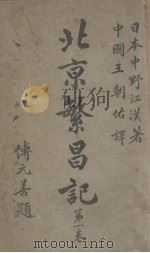 日本中野江漢著
中國王朝佑譯
北京繁昌記
第一卷
傅元善題
www.duxiu.com